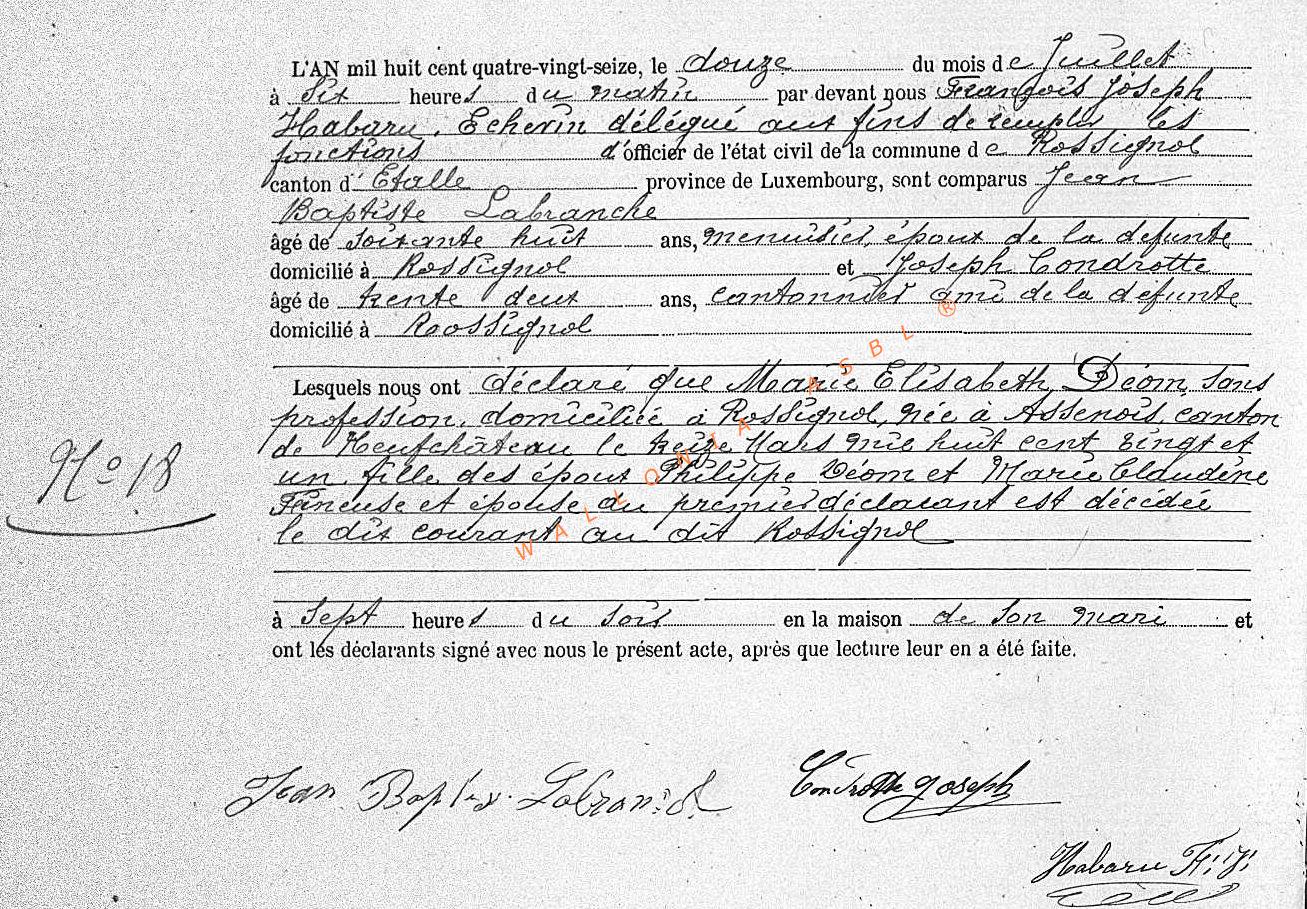 L'AN mil huit cent quatre-vingt-seize, le douze du mois de Juillet
à Six heures du matin par devant nous François Joseph
Habaru, Echevin délégué aux fins de remplir les
fonctions d'officier de l'état civil de la commune de Rossignol
canton d'Etalle province de Luxembourg, sont comparus Jean
Baptiste Labranche
âgé de soixante huit ans, menuisier, époux de la défunte
domicilié à Rossignol et Joseph Condrotte
âgé de trente deux ans, cantonnier ami de la défunte
domicilié à Roossignol
Lesquels nous ont déclaré que Marie Elisabeth Déom, sans
profession, domiciliée à Rossignol, née à Assenois, canton
de Neufchâteau le treize Mars mil huit cent vingt et
un fille des époux Philippe Déom et Marie Claudine
et épouse du premier déclarant est décédée
N° 18
le dix courant au dit Rossignol
à Sept heures du soir en la maison de son mari et
ont les déclarants signé avec nous le présent acte, après que lecture leur en a été faite.
Jean Baptis. Labranch
Condrotte Joseph
Habaru F. J.
WALLONIA ASBL ®